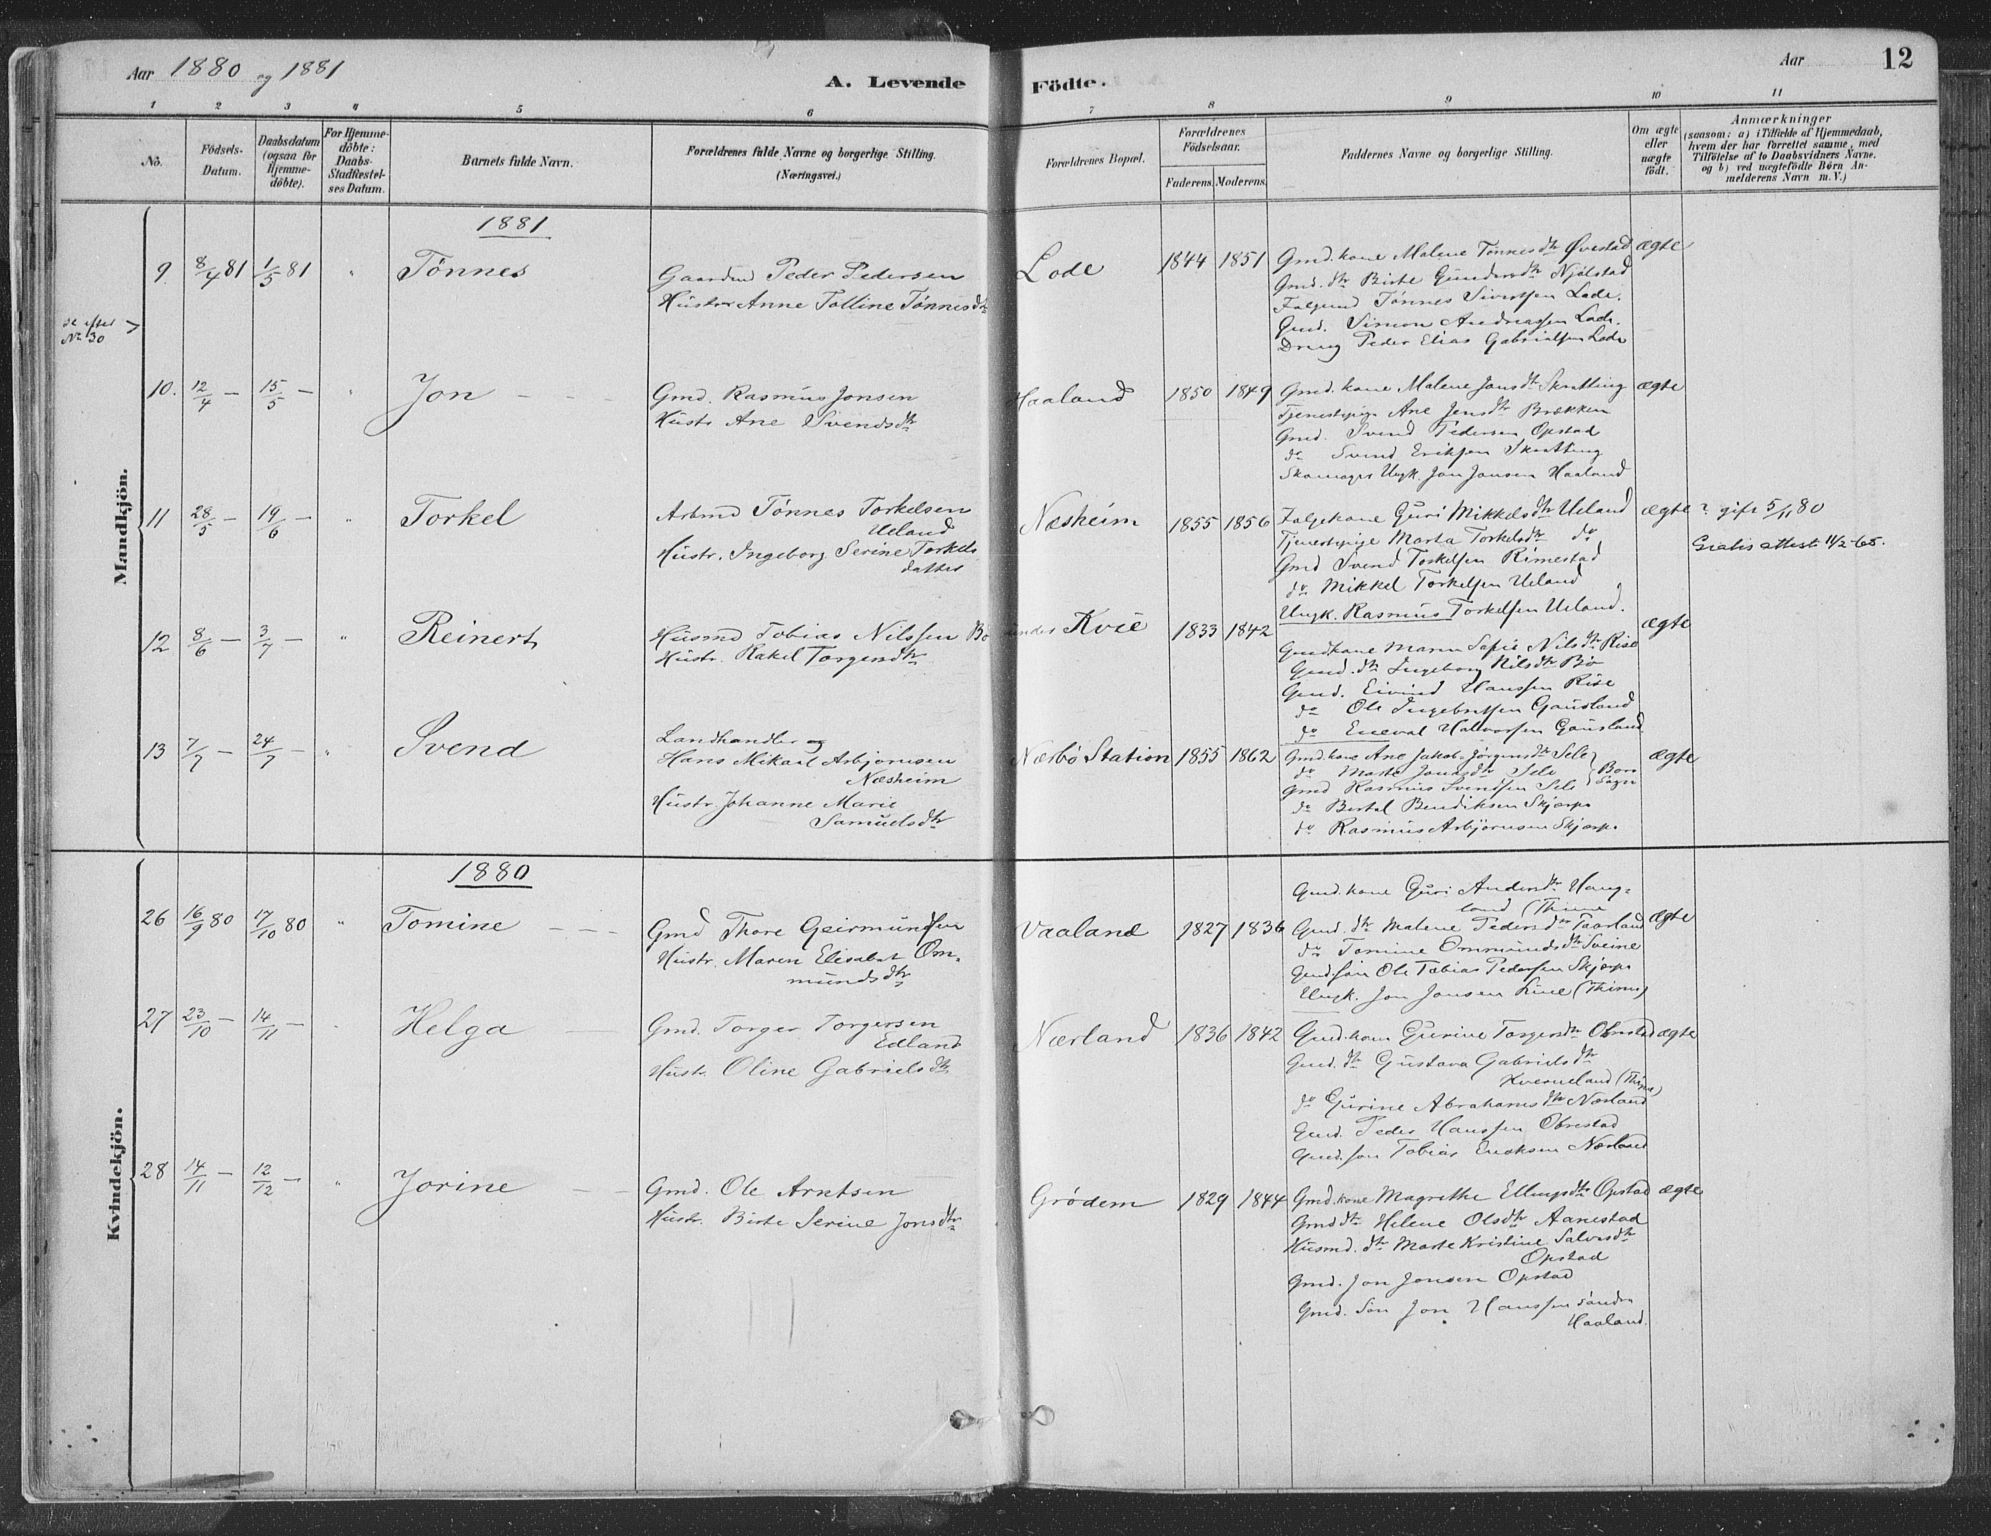 Aar 1880 og 1881
A. Levende
Födte.
Aar
12
1
2
3
4
5
6
7
8
9
10
11
No.
Födsels-
Datum.
Daabsdatum
(ogsaa for
Hjemme-
döbte).
For Hjemme-
döbte:
Daabs-
Stadfæstel-
ses Datum.
Barnets fulde Navn.
Forældrenes fulde Navne og borgerlige Stilling.
(Næringsvei.)
Forældrenes Bopæl.
Forældrenes
Födselsaar.
Faderens.
Moderens.
Faddernes Navne og borgerlige Stilling.
Om ægte
eller
uægte
födt.
Anmærkninger
(saasom: a) i Tilfælde af Hjemmedaab,
hvem der har forrettet samme, med
Tilföielse af to Daabsvidners Navne.
og b) ved uægtefödte Börn An-
melderens Navn m. V.)
Mandkjön.
1881
9. 8/4 81 1/5 81 " Tönnes
Gaardmd Peder Pedersen
Hustru Anne Talline Tönnesdtr
Lode 1844 1851
Gmd. kone Malene Tönnesdtr Övestad ægte
Gmd. dtr Birte Gundersdtr Njölstad
Folgemd Tönnes Sivertsen Lode.
Gmd. Simon Andreassen Lode.
Dreng Peder Elias Gabrielsen Lode
se efter
No 30
10. 12/4 — 15/5 — " Jon
Gmd. Rasmus Jonsen
Hustr Ane Svendsdtr
Haaland 1850 1849
Gmd. kone Malene Jonsdtr Skratting ægte
Tjenestepige Ane Jensdtr Brækken
Gmd. Svend Pedersen Opstad
do Svend Eriksen Skratting
Skomager Ungk. Jon Jonsen Haaland
11 28/5 — 19/6 — " Torkel
Arbmd Tönnes Torkelsen
Ueland
Hustr. Ingeborg Serine Torkels
datter
Næsheim 1855 1856
Folgekone Guri Mikkelsdtr Ueland ægte ? gift 5/11 80
Tjenestepige Marta Torkelsdtr do
Gratis attest 11/2-65.
Gmd Svend Torkelsen Rimestad
do Mikkel Torkelsen Ueland
Ungk. Rasmus Torkelsen Ueland.
12 8/6 — 3/7 — " Reinert
Husmd Tobias Nilssen Bö
Hustr. Rakel Torgersdtr
under Kvie 1833 1842 ægte
Gmdkone Maren Sofie Nilsdtr Rise
Gmd. dtr Ingeborg Nilsdtr Bö
Gmd. Eivind Hanssen Rise
do Ole Ingebretsen Gausland
do Eneval Halvorsen Gausland
13 7/7 — 24/7 — " Svend
Landhandler og
Hans Mikael Asbjörnsen
Næsheim
Hustr. Johanne Marie
Samuelsdtr
Nærbö Station 1855 1862
Gmd. kone Ane Jakob. Jörgensdtr Sele ægte
do Marte Jonasdtr Sele
Bore
Sogn
Gmd Rasmus Svendsen Sele
do Bertel Bendiksen Skjærpe
do Rasmus Asbjörnsen Skjærpe
Kvindekjön.
1880
26 16/9 80 17/10 80 " Tomine
Gmd Thore Geirmundsen
Hustr. Maren Elisabet Om-
mundsdtr
Vaaland 1827 1836
Gmd. kone Guri Andersdtr Haug-
land (Thime
Gmd. dtr Malene Pedersdtr Taarland ægte
do Tomine Ommundsdtr Sveine
Gmd. sön Ole Tobias Pedersen Skjærpe
Ungk. Jon Jonsen Line (Thime)
27 23/10 — 14/11 — Helga
Gmd. Torger Torgersen
Edland
Hustr. Oline Gabrielsdtr
Nærland 1836 1842
Gmd. kone Gurine Torgersdtr Obrestad ægte
Gmd. dtr Gustava Gabrielsdtr
Kverneland (Thime)
do Gurine Abrahamsdtr Nærland
Gmd. Peder Hanssen Obrestad
Gmd. sön Tobias Eriksen Nærland
28 14/11 — 12/12 — " Jorine
Gmd. Ole Arntsen
Hustr. Birte Serine Jonsdtr
Grödem 1829 1844
Gmd. kone Magrethe Ellingsdtr Opstad ægte
Gmd dtr Helene Olsdtr Aanestad
Husmd. dtr Marte Kristine Salvesdtr
Opstad
Gmd. Jon Jonsen Opstad
Gmd. Sön Jon Hanssen söndre
Haaland.